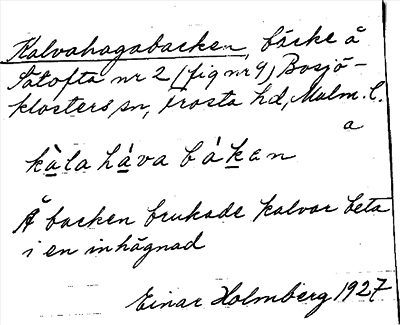 Kalvahagabacken, backe å
Sätofta nr 2 (fig nr 9) Bosjö-
klosters sn, Frosta hd, Malm. l.
a
kàla háva bákan
Å backen brukade kalvar beta
i en inhägnad
Einar Holmberg 1927